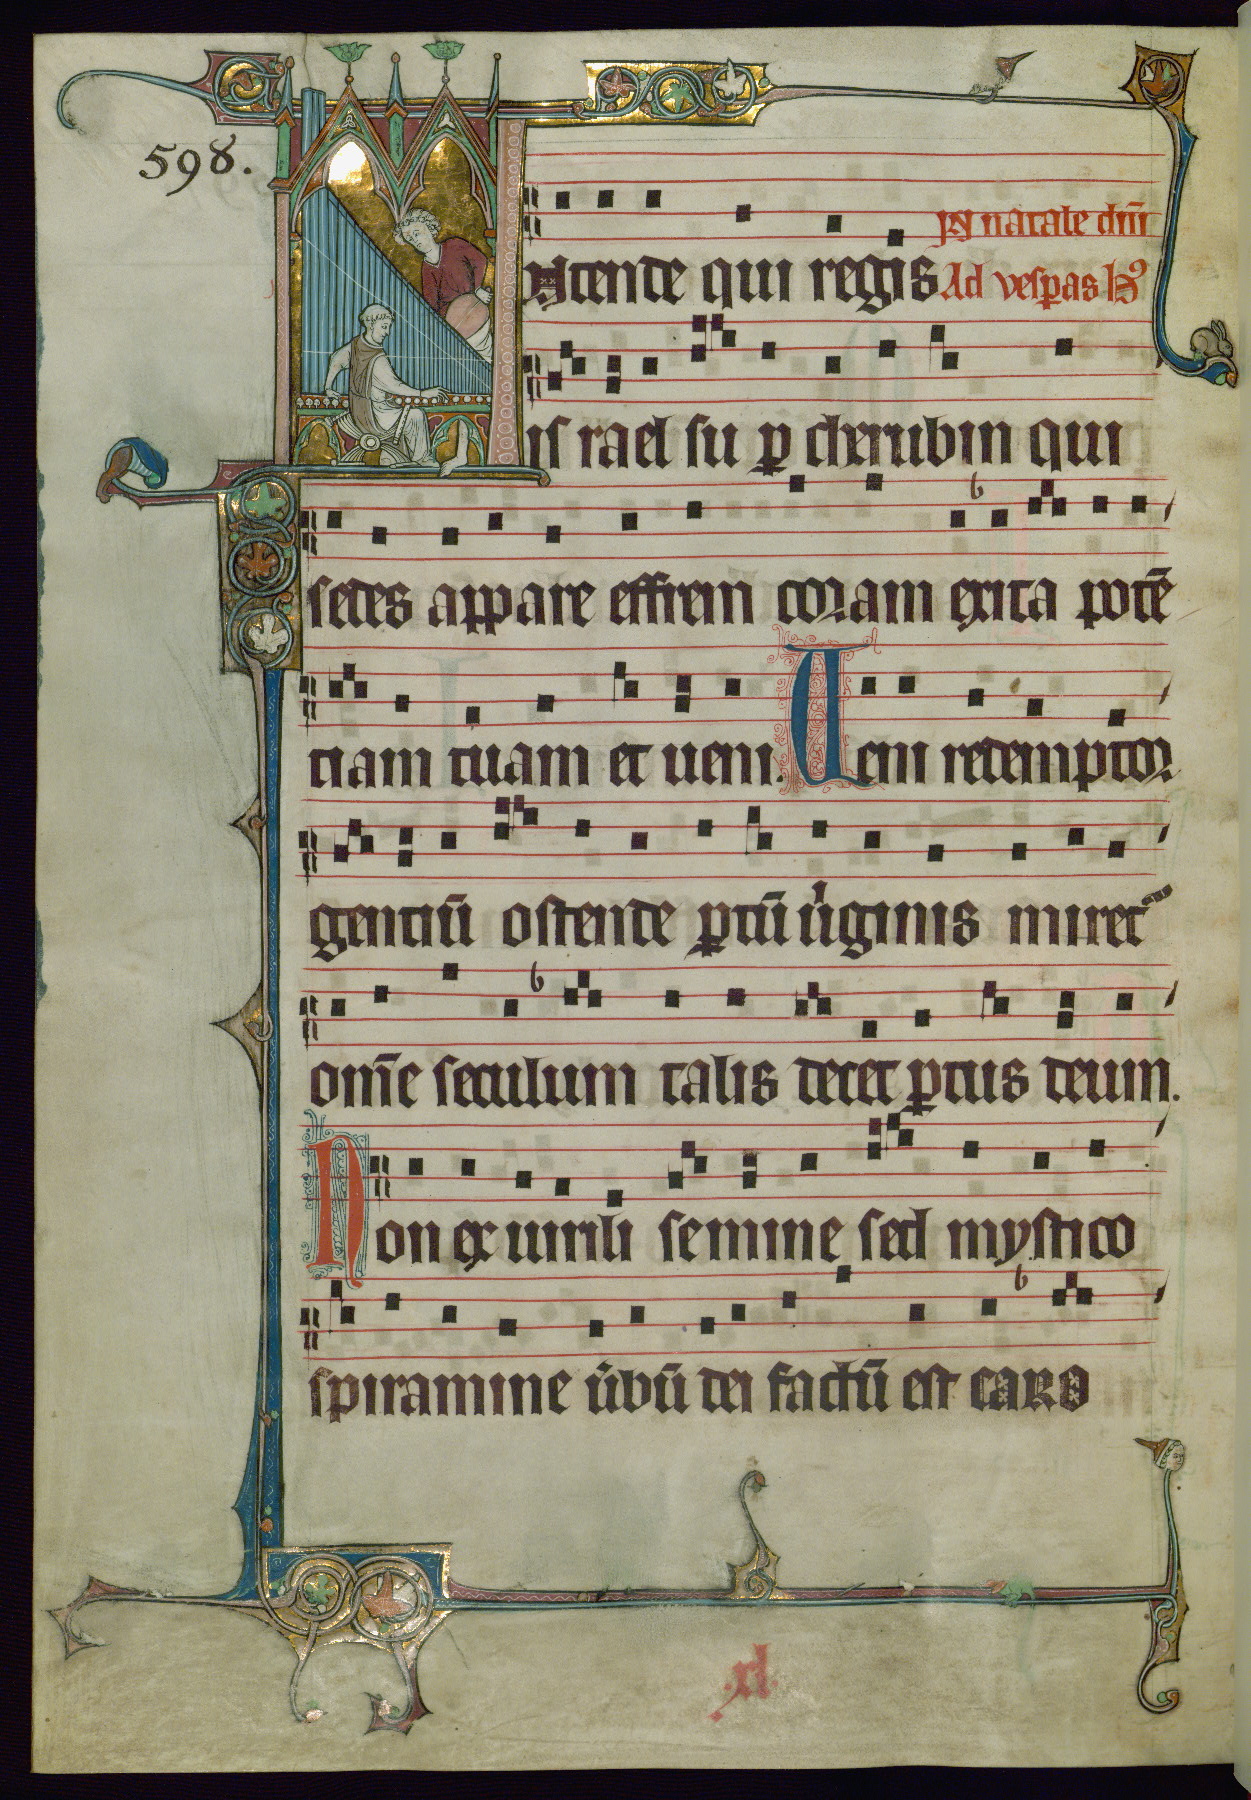 598.
Jn natale dñi
Jntende qui regis Ad vesp̱as hꝰ
is rael su ꝑ cherubin qui
sedes appare effrem coram exita potē
tiam tuam et ueni. Veni redemptor
gentiū ostende ꝑtū uͥginis miret᷑
om̄e seculum talis decet ꝑtus deum.
Non ex uirili semine sed mystico
spiramine u̾bū dei factū est caro
.xl.